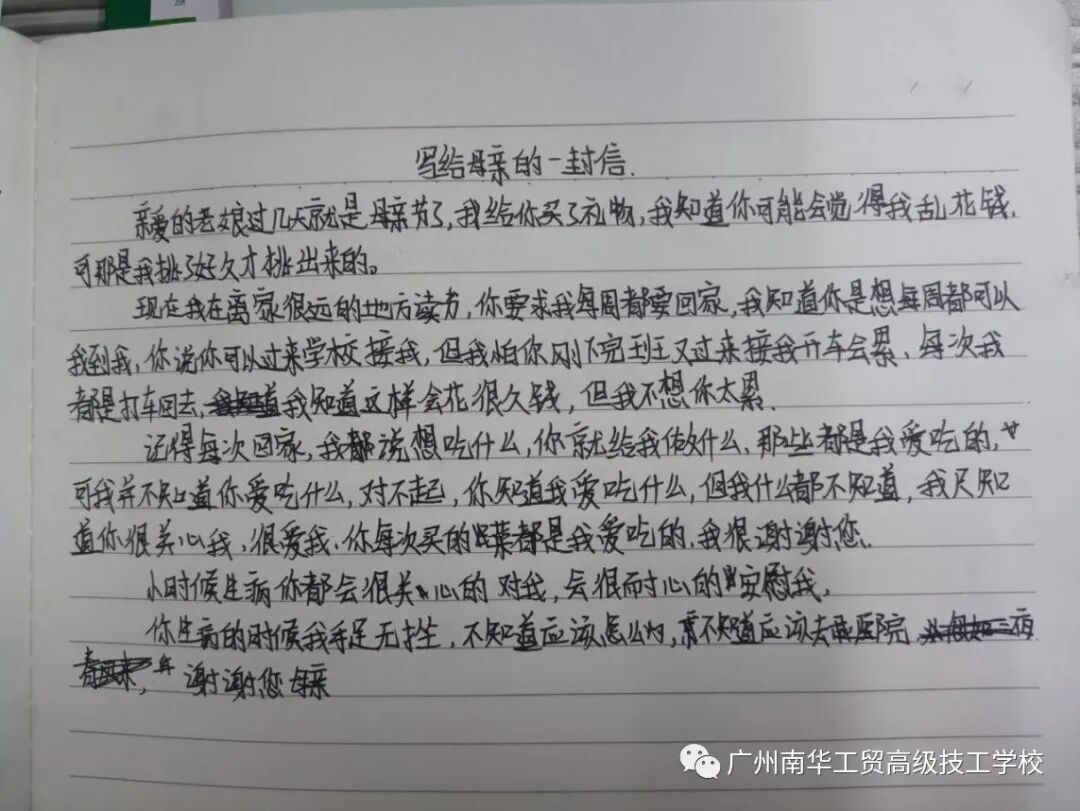 写给母亲的一封信.
亲爱的老娘过几天就是母亲节了,我给你买了礼物,我知道你可能会觉得我乱花钱.
可那是我挑了好久才挑出来的。
现在我在离家很远的地方读书,你要求我每周都要回家,我知道你是想每周都可以
我到我,你说你可以过来学校接我,但我怕你刚下完班又过来接我开车会累、每次我
都是打车回去,我知道这样会花很久钱,但我不想你太累.
记得每次回家,我都说想吃什么,你就给我做什么、那些都是我爱吃的,
可我并不知道你爱吃什么,对不起,你知道我爱吃什么,但我什么都不知道,我只知
道你很关心我、很爱我、你每次买的菜都是我爱吃的.我很谢谢您.
小时候生病你都会很关心的对我,会很耐心的安慰我,
你生病的时候我手足无措,不知道应该怎么办,不知道应该去医院
谢谢您母亲
广州南华工贸高级技工学校